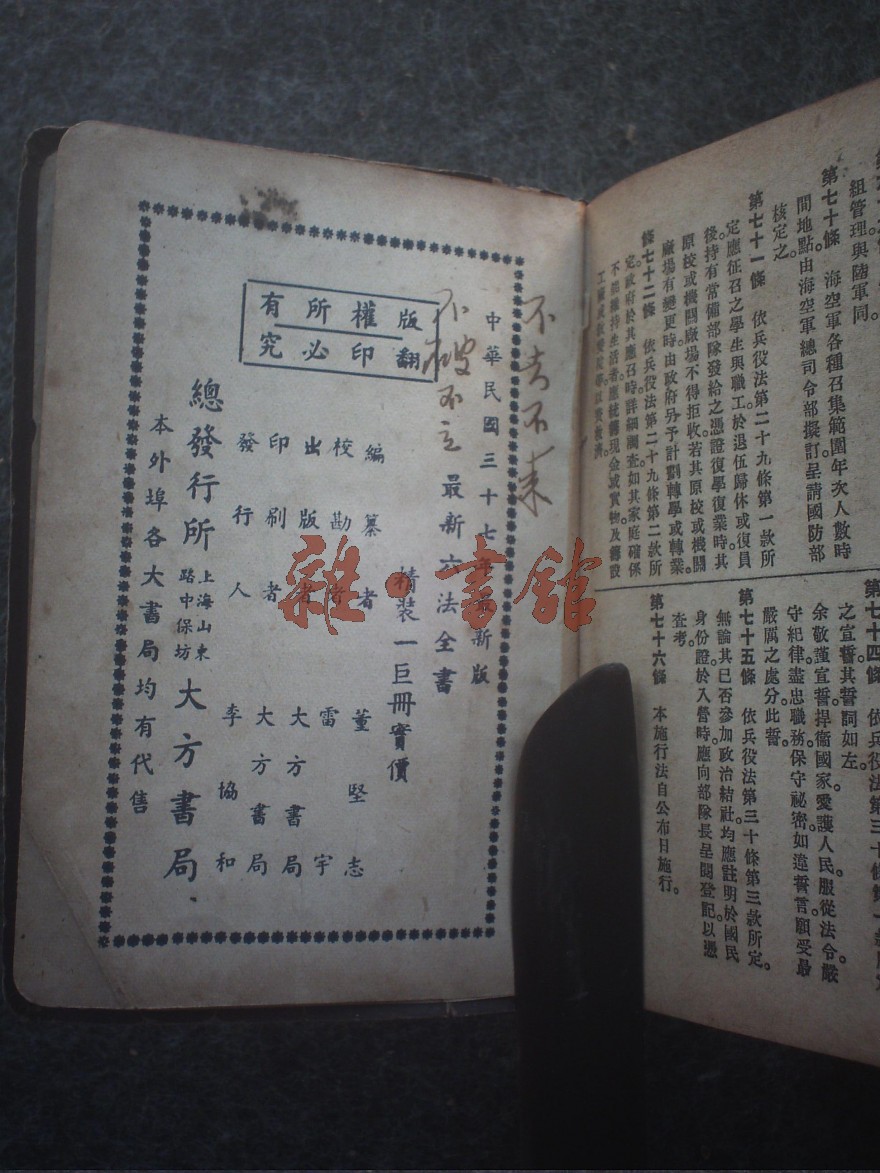 組管理與陸軍同。
第七十條　海空軍各種召集範圍年次人數時
間地點由海空軍總司令部擬訂呈請國防部
核定之。
第七十一條　依兵役法第二十九條第一款所
定應征召之學生與職工於退伍歸休或復員
後持有常備部隊發給之憑證復學復業時其
原校或機關廠場不得拒收若其原校或機關
廠場有變更時由政府另予計劃轉學或轉業。
條七十二條　依兵役法第二十九條第二款所
定政府於其應召時詳細調查如其家庭確係
不能維持生活者應統籌現金或實物及籌設
之宣誓其誓詞如左。
余敬謹宣誓捍衞國家愛護人民服從法令嚴
守紀律盡忠職務保守祕密如違誓言願受最
嚴厲之處分此誓
第七十五條　依兵役法第三十條第三款所定。
無論其已否參加政治結社均應註明於國民
身份證於入營時應向部隊長呈閱登記以憑
查考。
第七十六條　本施行法自公布日施行。
不去不來
不破不立
中華民國三十七年最新版
最新六法全書
精裝一巨冊實價
版權所有
翻印必究
編纂者　董堅志
校勘者　雷宇
出版者　大方書局
印刷者　大方書局
發行人　李協和
總發行所　上海山東路中保坊　大方書局
本外埠各大書局均有代售
雜·書館